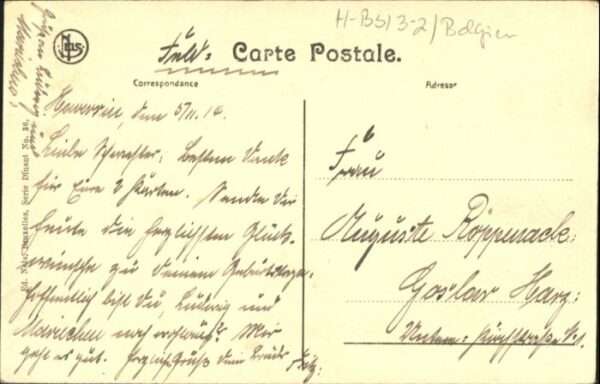 H-BS/3-2/Belgien
Feld-
Carte Postale.
Correspondance
Adresse
den 5/11. 14.
Liebe Schwester, besten Dank
für Eure 2 Karten. Sende Dir
heute die herzlichsten Glück-
wünsche zu Deinem Geburtstage.
Hoffentlich bist Du, Ludwig und
Mariechen noch Mir
geht es gut. Herzl. Grüße Dein Bruder Fritz.
Frau
Auguste Röppenack
Goslar Harz
Grüße an Ludwig und
Mariechen
Ed. Nels, Bruxelles, Serie Dinant No. 38.